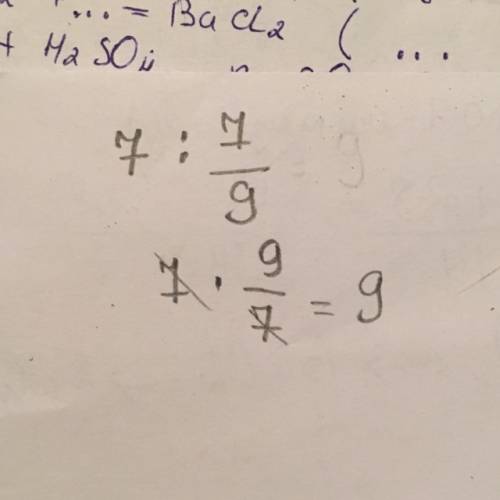 ... = BaCl₂ ( ...
+ H₂SO₄
7 : 7/9
7 · 9/7 = 9